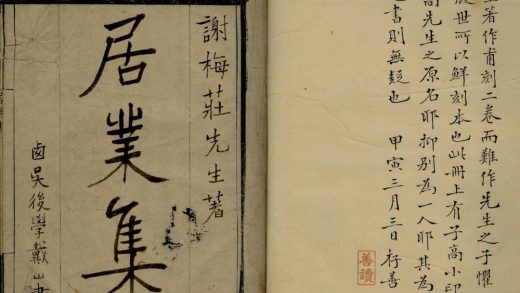 著作甫刻二卷而難作先生之子懼
世所以鮮刻本也此冊上有子高小印
先生之原名耶抑別為一人耶其為
書則無疑也 甲寅三月三日存善
善讀
謝梅莊先生著
居業集
鹵吳後學戴